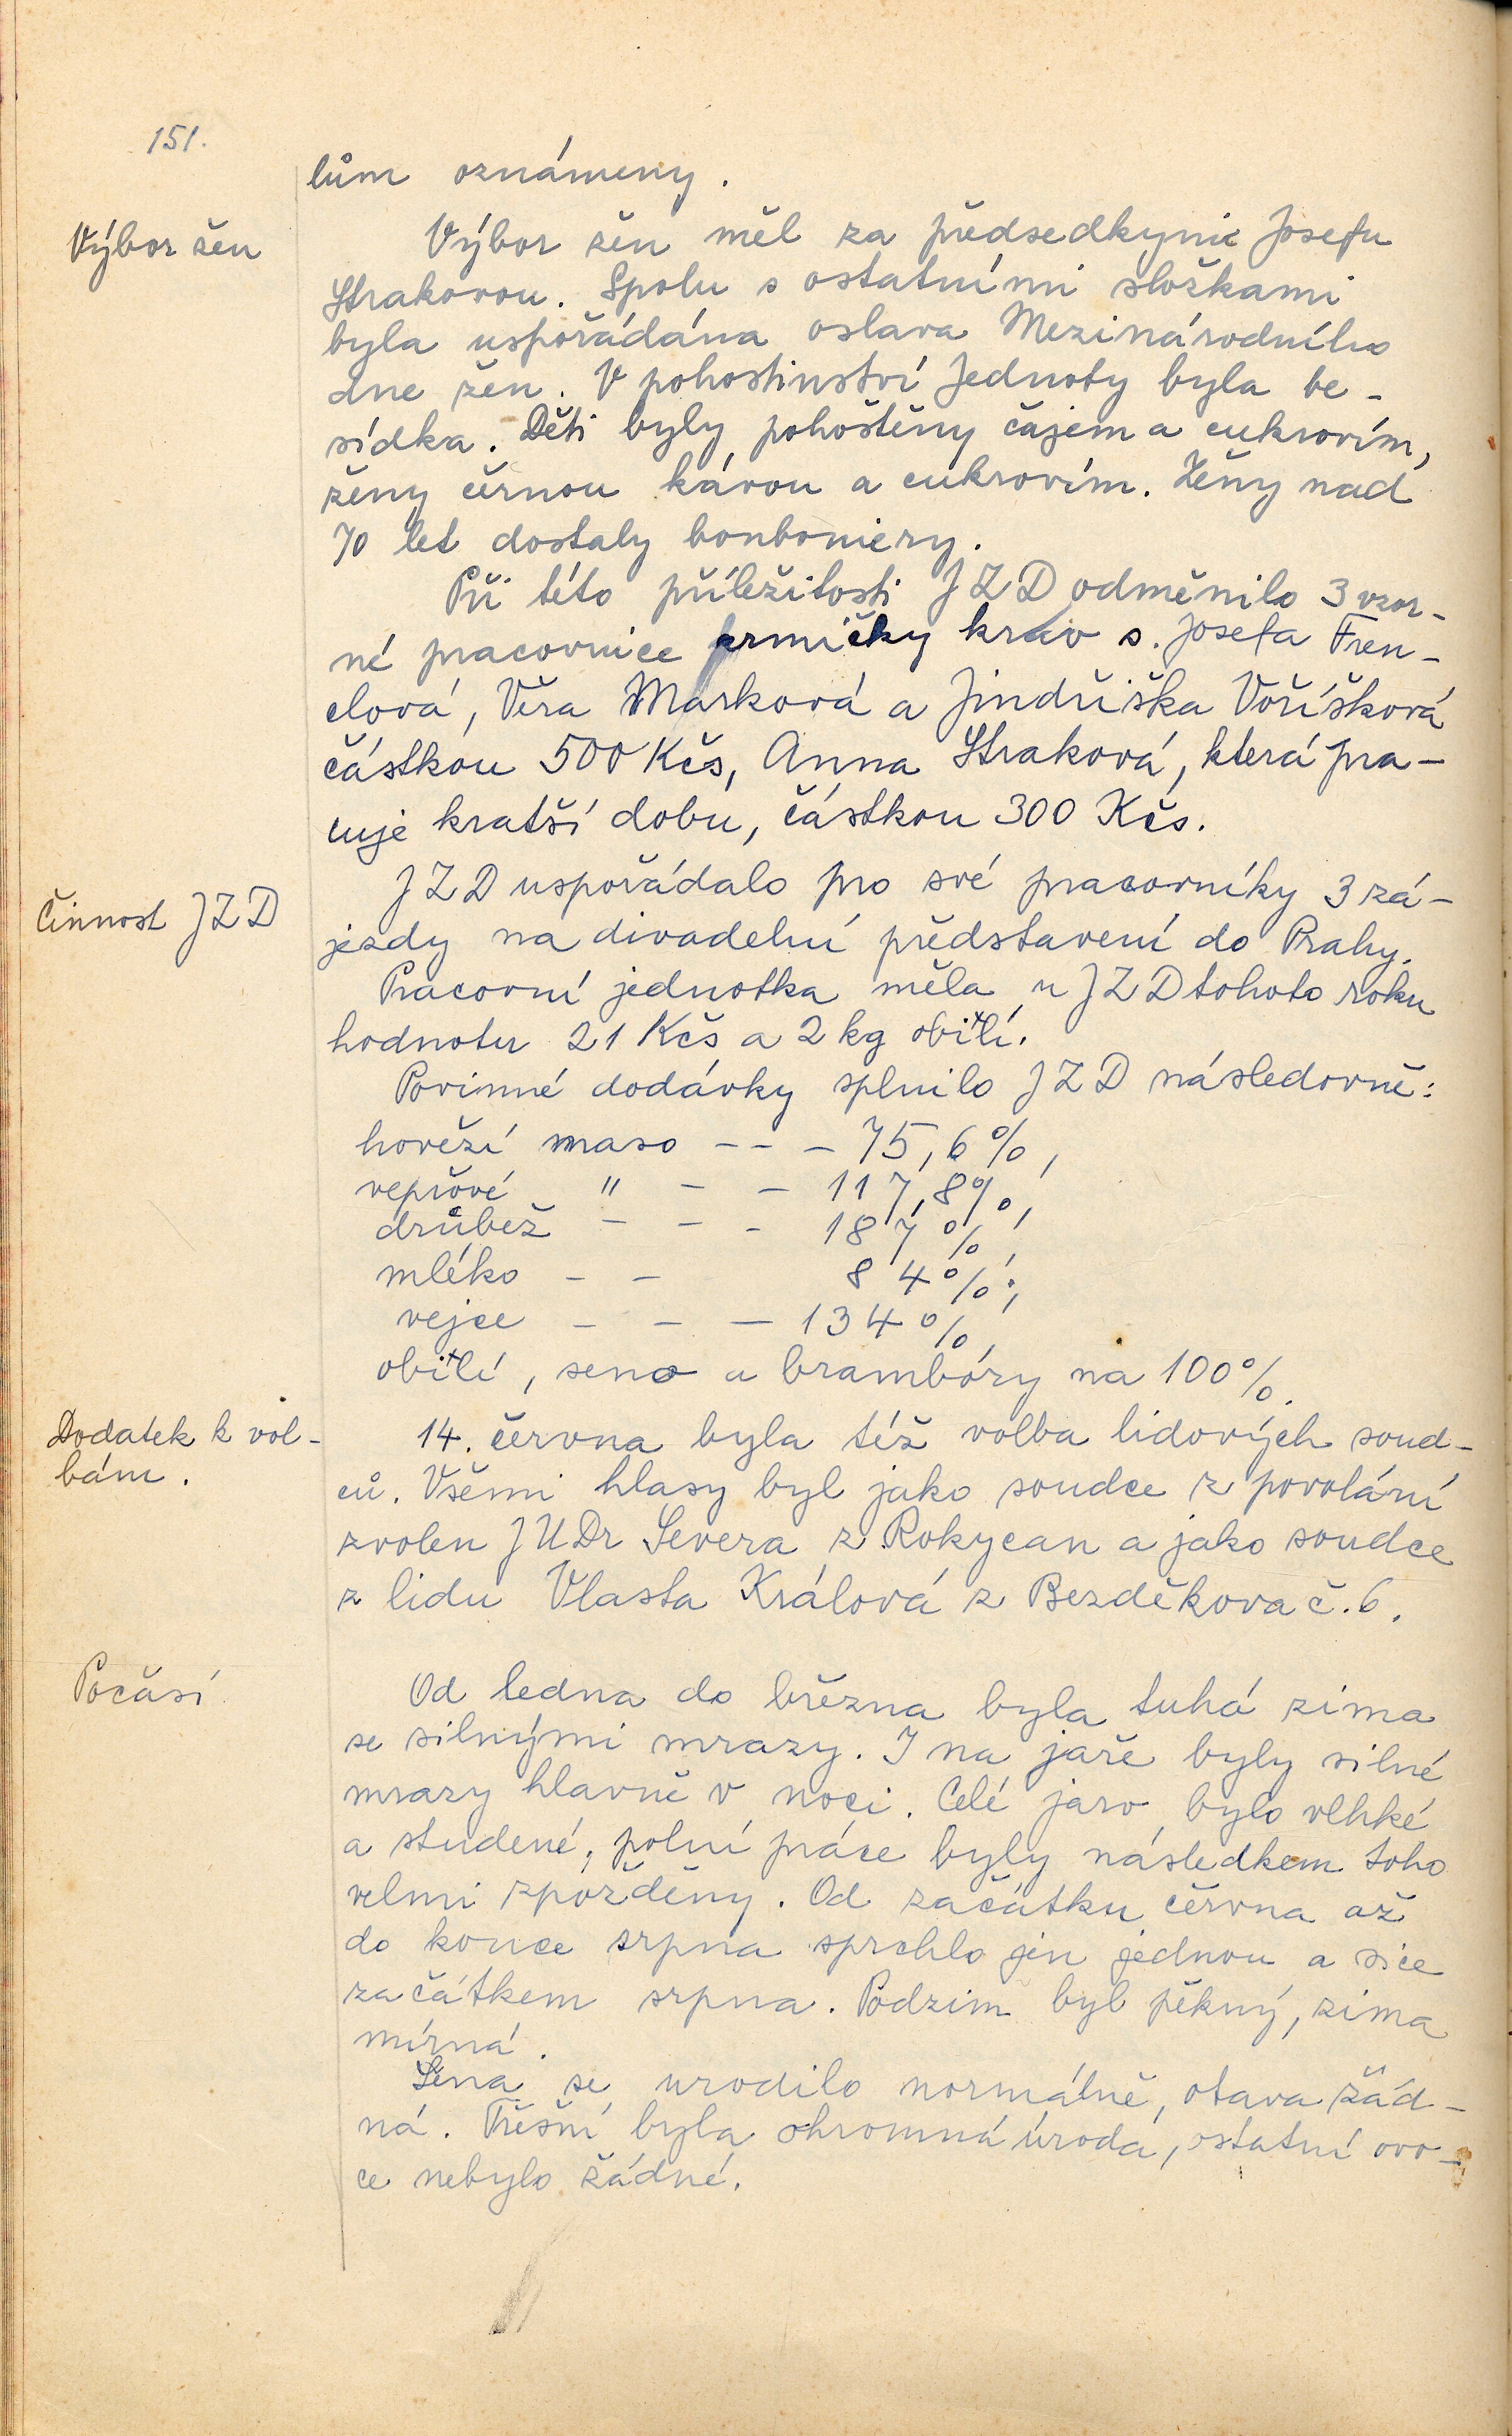 151.
lům oznámeny.
Výbor žen
Výbor žen měl za předsedkyni Josefu
Strakovou. Spolu s ostatními složkami
byla uspořádána oslava Mezinárodního
dne žen. V pohostinství Jednoty byla be-
sídka. Děti byly pohoštěny čajem a cukrovím,
ženy černou kávou a cukrovím. Ženy nad
70 let dostaly bonboniery.
Při této příležitosti JZD odměnilo 3 vzor-
né pracovnice krmičky krav s. Josefa Fren-
clová, Věra Marková a Jindřiška Voříšková
částkou 500 Kčs, Anna Straková, která pra-
cuje kratší dobu, částkou 300 Kčs.
Činnost JZD
JZD uspořádalo pro své pracovníky 3 zá-
jezdy na divadelní představení do Prahy.
Pracovní jednotka měla u JZD tohoto roku
hodnotu 21 Kčs a 2 kg obilí.
Povinné dodávky splnilo JZD následovně:
hovězí maso - - - 75,6%,
vepřové " - - 117,8%,
drůbež - - - 187%,
mléko - - 84%;
vejce - - - 134%,
obilí, seno a brambóry na 100%.
Dodatek k vol-
bám.
14. června byla též volba lidových soud-
ců. Všemi hlasy byl jako soudce z povolání
zvolen JUDr Severa z Rokycan a jako soudce
z lidu Vlasta Králová z Bezděkova č. 6.
Počasí
Od ledna do března byla tuhá zima
se silnými mrazy. I na jaře byly silné
mrazy hlavně v noci. Celé jaro bylo vlhké
a studené, polní práce byly následkem toho
velmi zpožděny. Od začátku června až
do konce srpna sprchlo jen jednou a sice
začátkem srpna. Podzim byl pěkný, zima
mírná.
Sena se urodilo normálně, otava žád-
ná. Třešní byla ohromná úroda, ostatní ovo-
ce nebylo žádné.